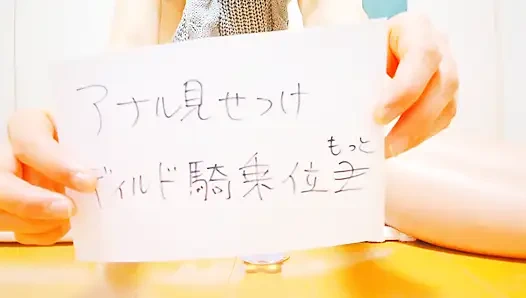 アナル見せつけ
もっと
ディルド騎乗位